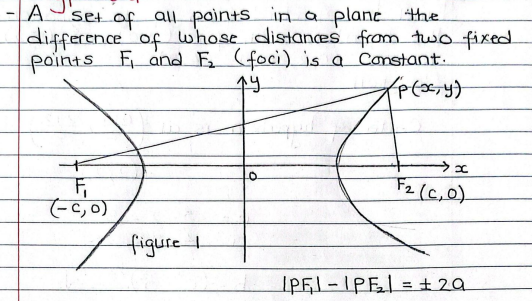 - A set of all points in a plane the
difference of whose distances from two fixed
points F₁ and F₂ (foci) is a Constant.
y
P(x,y)
x
0
F₁
(-c,0)
F₂ (c,0)
figure 1
|PF₁| - |PF₂| = ± 2a